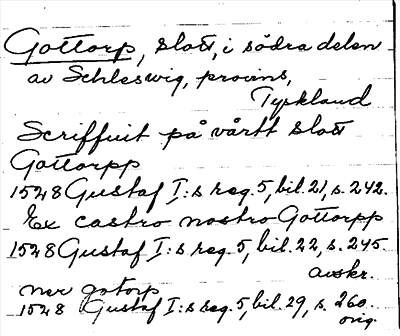 Gottorp, slott, i södra delen
av Schleswig, provins,
Tyskland
Scriffuit på vårtt slott
Gottorpp
1528 Gustaf I:s reg. 5, bil. 21, s. 242.
Ex castro nostro Gottorpp
1528 Gustaf I:s reg. 5, bil. 22, s. 245.
avskr.
ner gotorp
1528 Gustaf I:s reg. 5, bil. 29, s. 260.
orig.